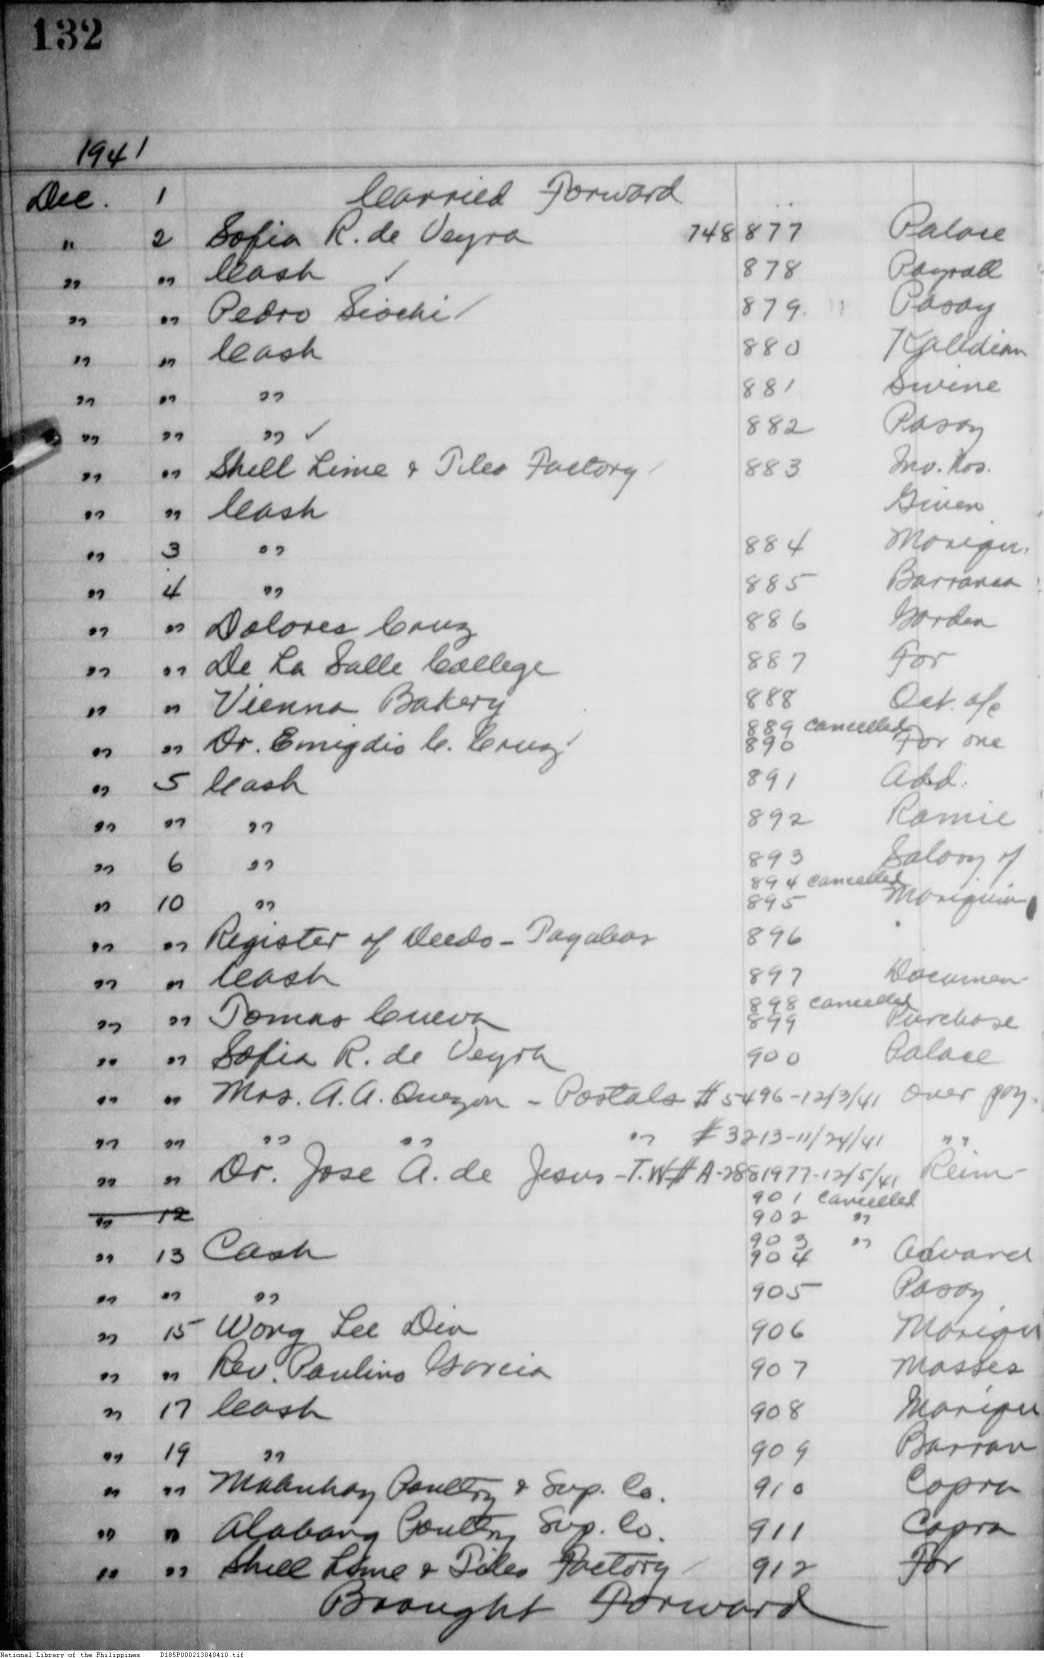 132
1941
Dec. 1 Carried Forward
" 2 Sofia R. de Veyra 748877 Palace
" " Cash ✓ 878 Payroll
" " Pedro Siochi / 879 " Pasay
" " Cash 880
" " " 881 Swine
" " " ✓ 882 Pasay
" " Shell Lime & Tiles Factory / 883 Inv. Nos.
" " Cash Given
" 3 " 884 Mariqui.
" 4 " 885 Barranca
" " Dolores Cruz 886 Garden
" " De La Salle College 887 For
" " Vienna Bakery 888 Oct. a/c
889 cancelled
" " Dr. Emigdio C. Cruz / 890 For one
" 5 Cash 891 Add.
" " " 892 Ramie
" 6 " 893 Salary of
894 cancelled
" 10 " 895 Mariquin
" " Register of Deeds - Tayabas 896 "
" " Cash 897 Documen
898 cancelled
" " Tomas Cueva 899 Purchase
" " Sofia R. de Veyra 900 Palace
" " Mrs. A. A. Quezon - Postals # 5496-12/3/41 over pay.
" " " " " # 3213-11/24/41 " "
" " Dr. Jose A. de Jesus - T.W# A-2881977-12/5/41 Reim-
901 cancelled
" 12 902 "
903 "
" 13 Cash 904 Advance
" " " 905 Pasay
" 15 Wong Lee Din 906 Mariqui
" " Rev. Paulino Garcia 907 Masses
" 17 Cash 908 Mariqui
" 19 " 909 Barran
" " Mabuhay Poultry & Sup. Co. 910 Copra
" " Alabang Poultry Sup. Co. 911 Copra
" " Shell Lime & Tiles Factory / 912 For
Brought Forward
National Library of the Philippines D185P000213040410.tif